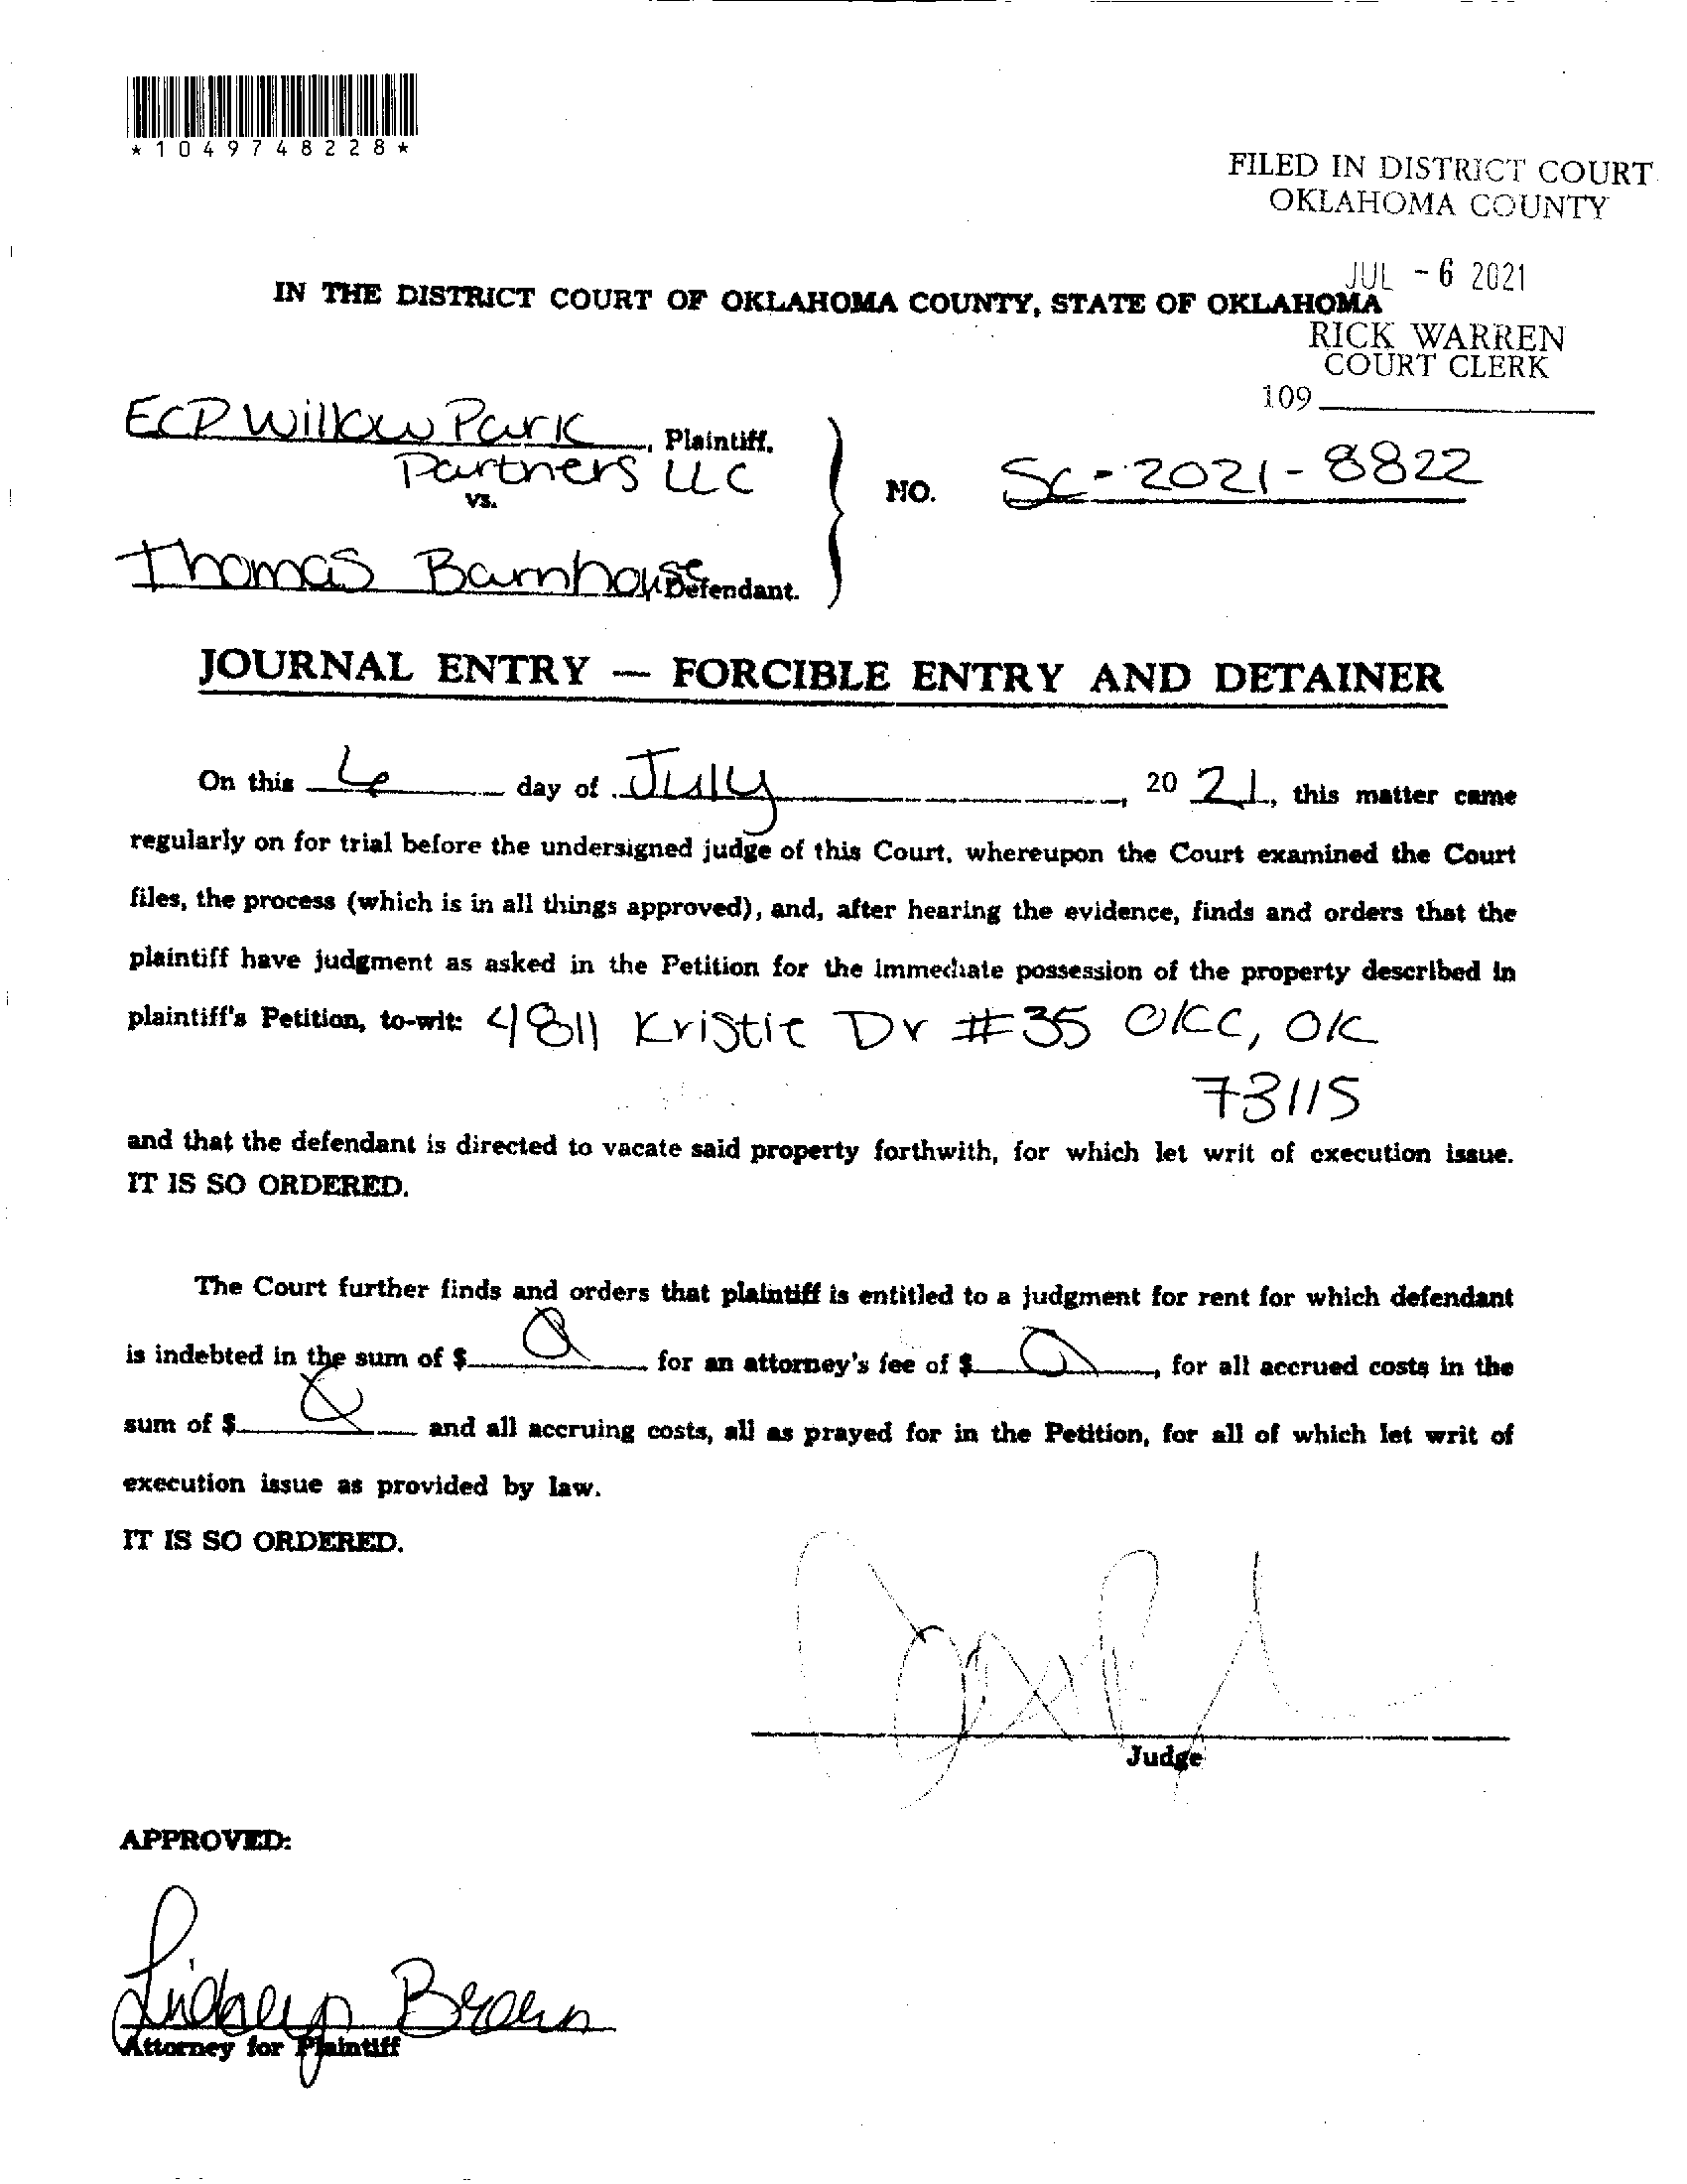 *1049748228*
FILED IN DISTRICT COURT
OKLAHOMA COUNTY
JUL -6 2021
IN THE DISTRICT COURT OF OKLAHOMA COUNTY, STATE OF OKLAHOMA
RICK WARREN
COURT CLERK
109
ECP Willow Park, Plaintiff,
Partners LLC
vs.
NO. SC-2021-8822
Thomas Barnhouse Defendant.
JOURNAL ENTRY — FORCIBLE ENTRY AND DETAINER
On this 6 day of July, 20 21, this matter came
regularly on for trial before the undersigned judge of this Court, whereupon the Court examined the Court
files, the process (which is in all things approved), and, after hearing the evidence, finds and orders that the
plaintiff have judgment as asked in the Petition for the immediate possession of the property described in
plaintiff's Petition, to-wit: 4811 Kristie Dr #35 OKC, OK
73115
and that the defendant is directed to vacate said property forthwith, for which let writ of execution issue.
IT IS SO ORDERED.
The Court further finds and orders that plaintiff is entitled to a judgment for rent for which defendant
is indebted in the sum of $ 0 for an attorney's fee of $ 0, for all accrued costs in the
sum of $ 0 and all accruing costs, all as prayed for in the Petition, for all of which let writ of
execution issue as provided by law.
IT IS SO ORDERED.
Judge
APPROVED:
Brown
Attorney for Plaintiff